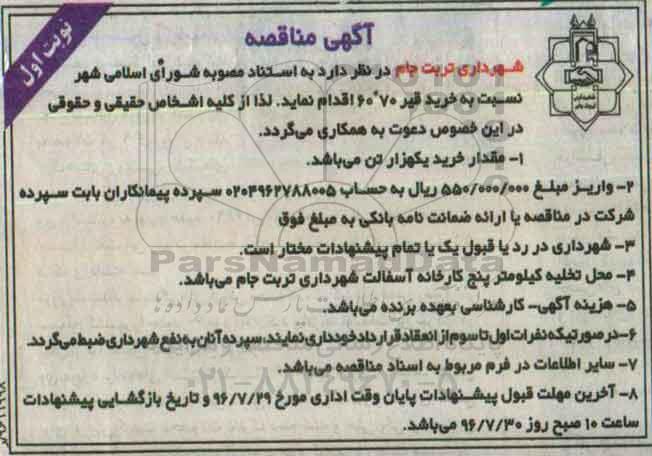 نوبت اول
آگهی مناقصه
شهرداری تربت جام در نظر دارد به استناد مصوبه شورأی اسلامی شهر
نسبت به خرید قیر ۷۰*۶۰ اقدام نماید. لذا از کلیه اشخاص حقیقی و حقوقی
در این خصوص دعوت به همکاری می‌گردد.
۱- مقدار خرید یکهزار تن می‌باشد.
۲- واریز مبلغ ۵۵۰/۰۰۰/۰۰۰ ریال به حساب ۰۲۰۳۹۶۲۷۸۸۰۰۵ سپرده پیمانکاران بابت سپرده
شرکت در مناقصه یا ارائه ضمانت نامه بانکی به مبلغ فوق
۳- شهرداری در رد یا قبول یک یا تمام پیشنهادات مختار است.
۴- محل تخلیه کیلومتر پنج کارخانه آسفالت شهرداری تربت جام می‌باشد.
۵- هزینه آگهی- کارشناسی بعهده برنده می‌باشد.
۶-در صورتیکه نفرات اول تا سوم از انعقاد قرارداد خودداری نمایند، سپرده آنان به نفع شهرداری ضبط می‌گردد.
۷- سایر اطلاعات در فرم مربوط به اسناد مناقصه می‌باشد.
۸- آخرین مهلت قبول پیشنهادات پایان وقت اداری مورخ ۹۶/۷/۲۹ و تاریخ بازگشایی پیشنهادات
ساعت ۱۰ صبح روز ۹۶/۷/۳۰ می‌باشد.
ParsNamadData
۰۲۱-۸۸۳۴۹۶۷۰-۵